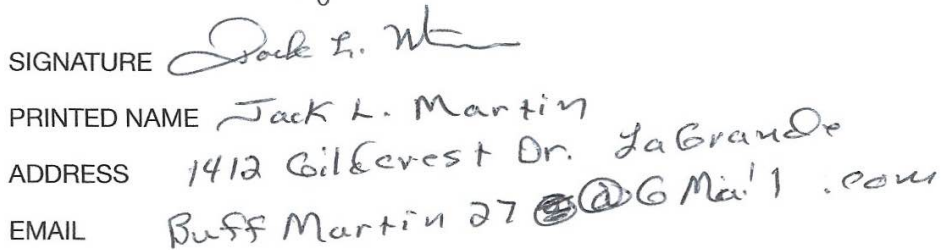 SIGNATURE Jack L. M
PRINTED NAME Jack L. Martin
ADDRESS 1412 Gildcrest Dr. LaGrande
EMAIL Buff Martin 27 @ G Mail .com